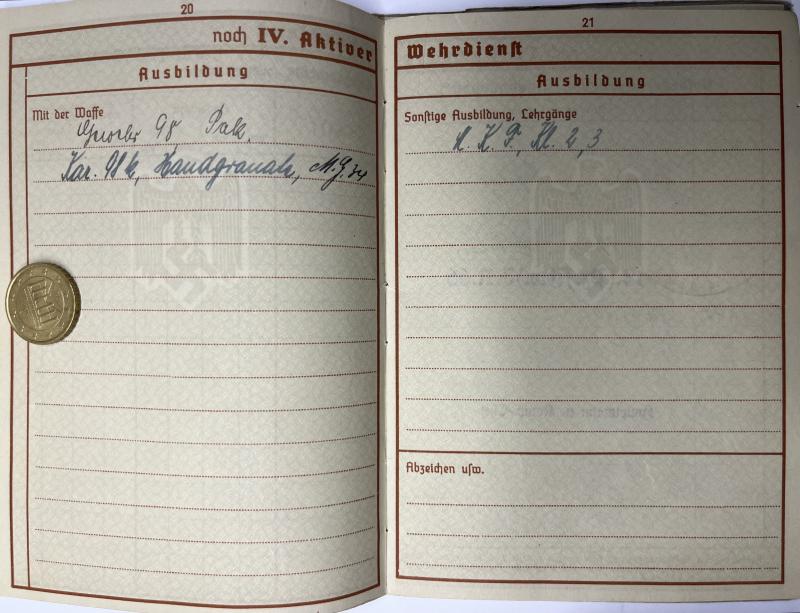 20
noch IV. Aktiver
Ausbildung
Mit der Waffe
Gewehr 98 Pak.
Kar. 98 k, Handgranate, M.G. 34
21
Wehrdienst
Ausbildung
Sonstige Ausbildung, Lehrgänge
K. F., Kl. 2, 3
Abzeichen usw.